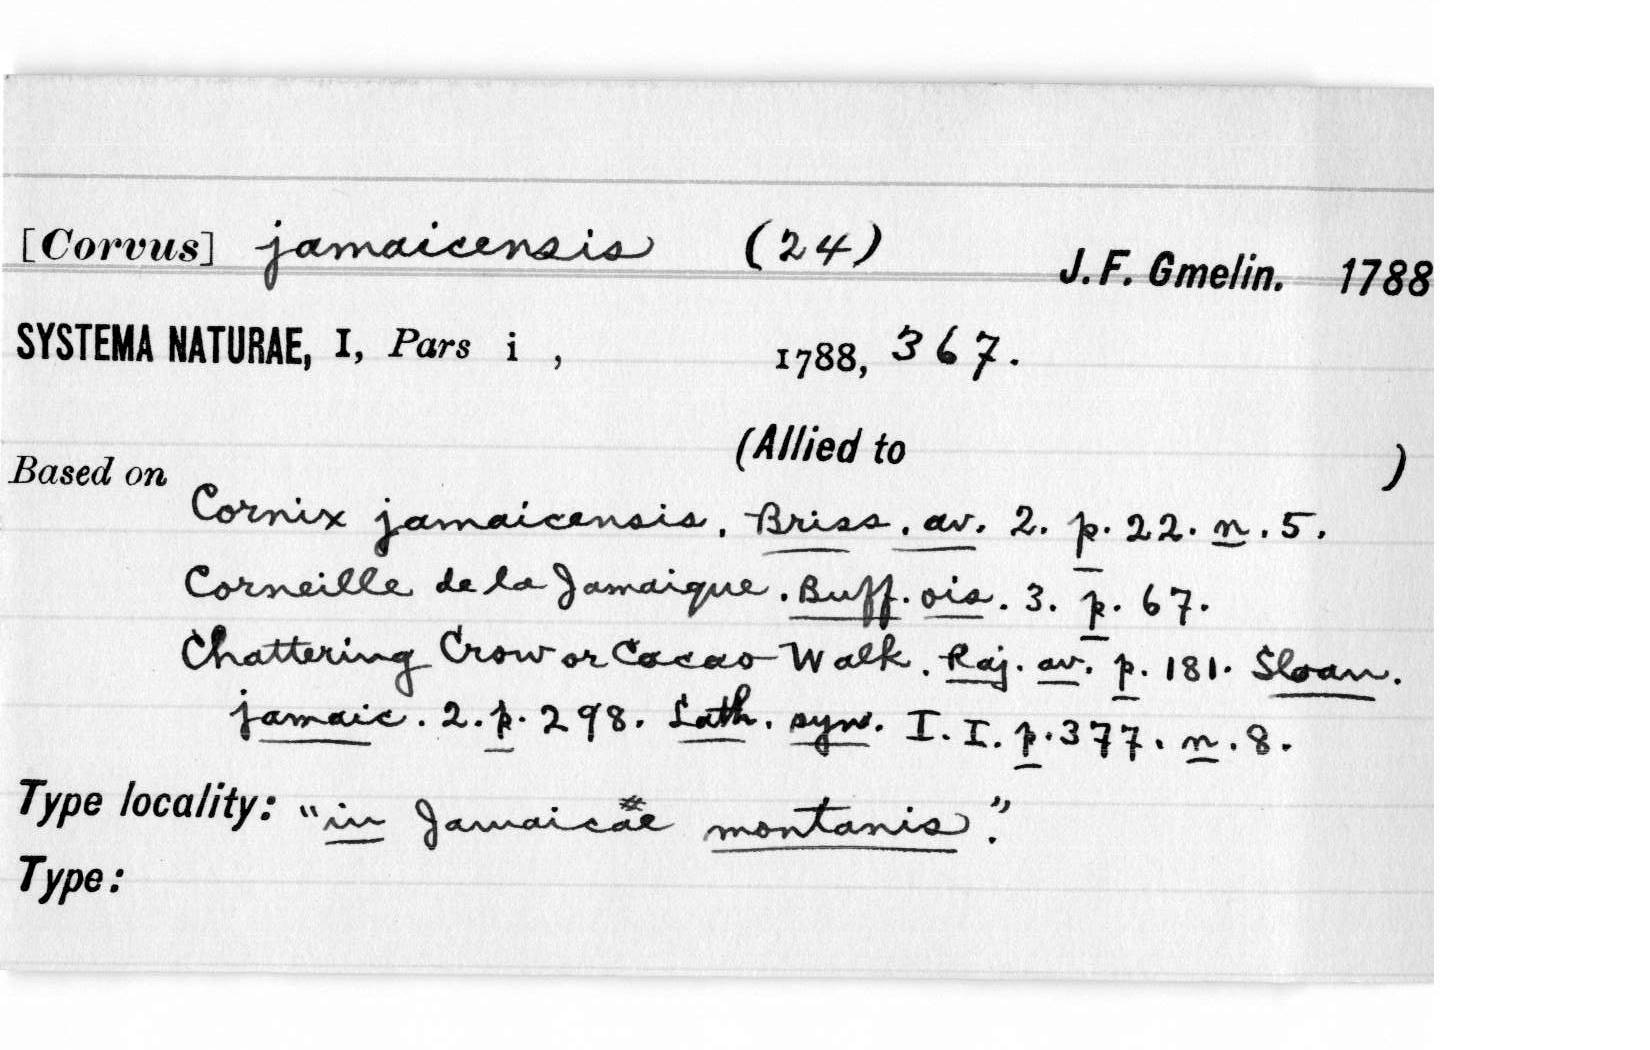 [Corvus] jamaicensis (24) J. F. Gmelin. 1788
SYSTEMA NATURAE, I, Pars i , 1788, 367.
(Allied to )
Based on
Cornix jamaicensis. Briss. av. 2. p. 22. n. 5.
Corneille de la Jamaique. Buff. ois. 3. p. 67.
Chattering Crow or Cacao Walk. Raj. av. p. 181. Sloan.
jamaic. 2. p. 298. Lath. syn. I. I. p. 377. n. 8.
Type locality: "in Jamaicae montanis".
Type: